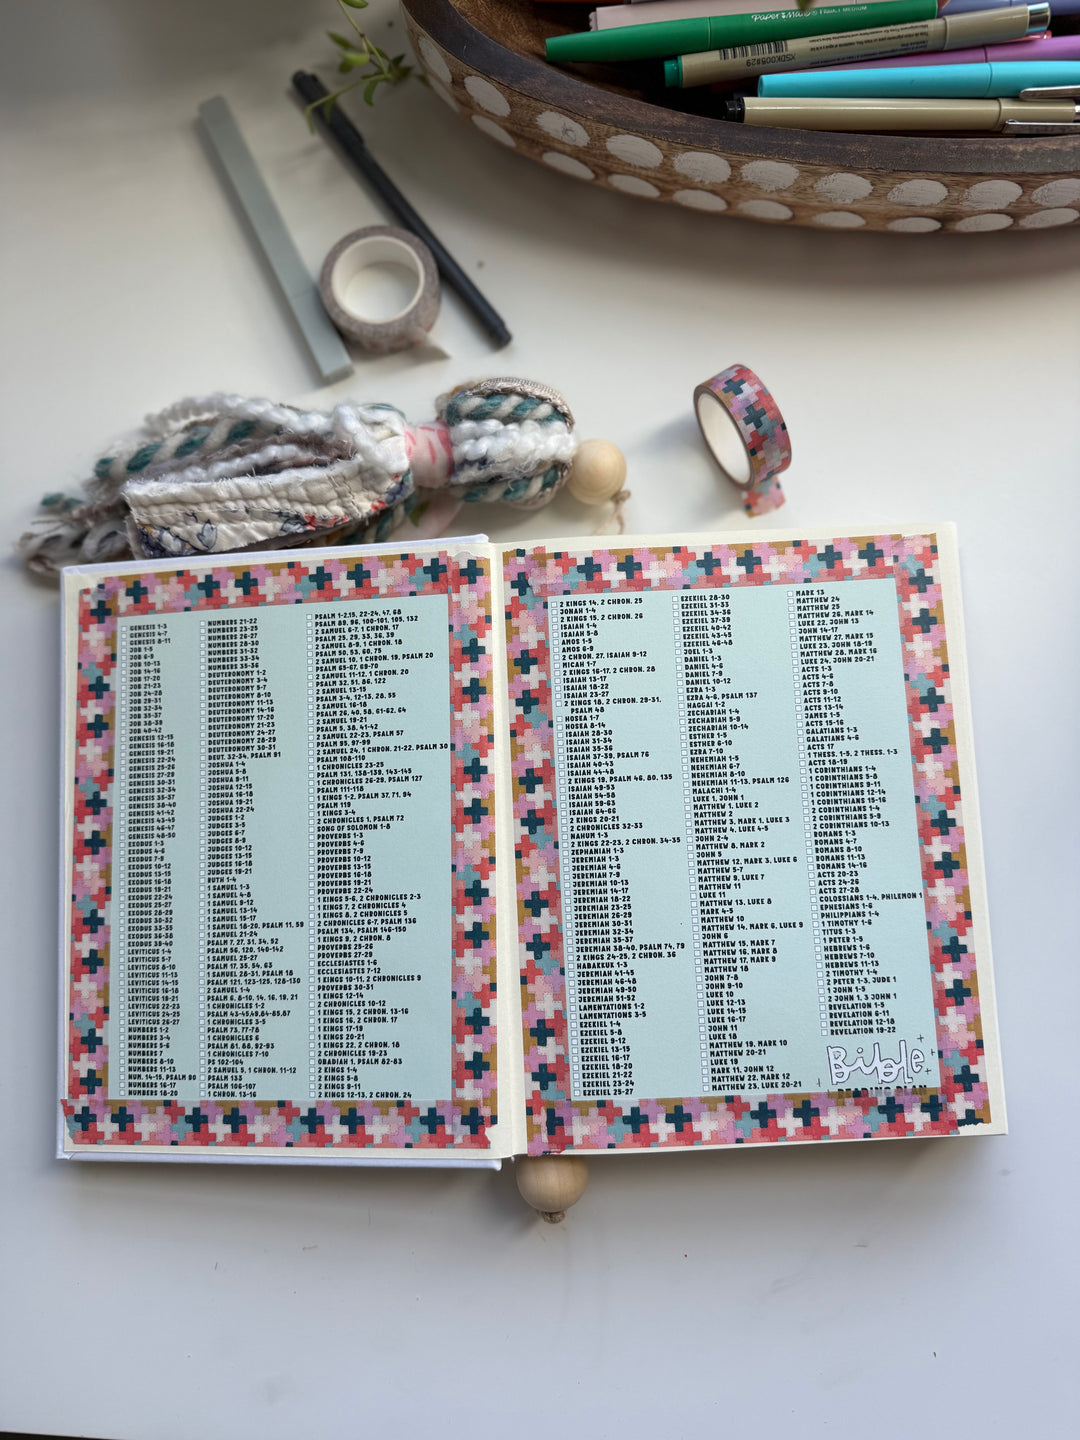 Paper Mate® Flair® MEDIUM
XSDK005#29
GENESIS 1-3
GENESIS 4-7
GENESIS 8-11
JOB 1-5
JOB 6-9
JOB 10-13
JOB 14-16
JOB 17-20
JOB 21-23
JOB 24-28
JOB 29-31
JOB 32-34
JOB 35-37
JOB 38-39
JOB 40-42
GENESIS 12-15
GENESIS 16-18
GENESIS 19-21
GENESIS 22-24
GENESIS 25-26
GENESIS 27-29
GENESIS 30-31
GENESIS 32-34
GENESIS 35-37
GENESIS 38-40
GENESIS 41-42
GENESIS 43-45
GENESIS 46-47
GENESIS 48-50
EXODUS 1-3
EXODUS 4-6
EXODUS 7-9
EXODUS 10-12
EXODUS 13-15
EXODUS 16-18
EXODUS 19-21
EXODUS 22-24
EXODUS 25-27
EXODUS 28-29
EXODUS 30-32
EXODUS 33-35
EXODUS 36-38
EXODUS 39-40
LEVITICUS 1-4
LEVITICUS 5-7
LEVITICUS 8-10
LEVITICUS 11-13
LEVITICUS 14-15
LEVITICUS 16-18
LEVITICUS 19-21
LEVITICUS 22-23
LEVITICUS 24-25
LEVITICUS 26-27
NUMBERS 1-2
NUMBERS 3-4
NUMBERS 5-6
NUMBERS 7
NUMBERS 8-10
NUMBERS 11-13
NUM. 14-15, PSALM 90
NUMBERS 16-17
NUMBERS 18-20
NUMBERS 21-22
NUMBERS 23-25
NUMBERS 26-27
NUMBERS 28-30
NUMBERS 31-32
NUMBERS 33-34
NUMBERS 35-36
DEUTERONOMY 1-2
DEUTERONOMY 3-4
DEUTERONOMY 5-7
DEUTERONOMY 8-10
DEUTERONOMY 11-13
DEUTERONOMY 14-16
DEUTERONOMY 17-20
DEUTERONOMY 21-23
DEUTERONOMY 24-27
DEUTERONOMY 28-29
DEUTERONOMY 30-31
DEUT. 32-34, PSALM 91
JOSHUA 1-4
JOSHUA 5-8
JOSHUA 9-11
JOSHUA 12-15
JOSHUA 16-18
JOSHUA 19-21
JOSHUA 22-24
JUDGES 1-2
JUDGES 3-5
JUDGES 6-7
JUDGES 8-9
JUDGES 10-12
JUDGES 13-15
JUDGES 16-18
JUDGES 19-21
RUTH 1-4
1 SAMUEL 1-3
1 SAMUEL 4-8
1 SAMUEL 9-12
1 SAMUEL 13-14
1 SAMUEL 15-17
1 SAMUEL 18-20, PSALM 11, 59
1 SAMUEL 21-24
PSALM 7, 27, 31, 34, 52
PSALM 56, 120, 140-142
1 SAMUEL 25-27
PSALM 17, 35, 54, 63
1 SAMUEL 28-31, PSALM 18
PSALM 121, 123-125, 128-130
2 SAMUEL 1-4
PSALM 6, 8-10, 14, 16, 19, 21
1 CHRONICLES 1-2
PSALM 43-45,49,84-85,87
1 CHRONICLES 3-5
PSALM 73, 77-78
1 CHRONICLES 6
PSALM 81, 88, 92-93
1 CHRONICLES 7-10
PS 102-104
2 SAMUEL 5, 1 CHRON. 11-12
PSALM 133
PSALM 106-107
1 CHRON. 13-16
PSALM 1-2,15, 22-24, 47, 68
PSALM 89, 96, 100-101, 105, 132
2 SAMUEL 6-7, 1 CHRON. 17
PSALM 25, 29, 33, 36, 39
2 SAMUEL 8-9, 1 CHRON. 18
PSALM 50, 53, 60, 75
2 SAMUEL 10, 1 CHRON. 19, PSALM 20
PSALM 65-67, 69-70
2 SAMUEL 11-12, 1 CHRON. 20
PSALM 32, 51, 86, 122
2 SAMUEL 13-15
PSALM 3-4, 12-13, 28, 55
2 SAMUEL 16-18
PSALM 26, 40, 58, 61-62, 64
2 SAMUEL 19-21
PSALM 5, 38, 41-42
2 SAMUEL 22-23, PSALM 57
PSALM 95, 97-99
2 SAMUEL 24, 1 CHRON. 21-22, PSALM 30
PSALM 108-110
1 CHRONICLES 23-25
PSALM 131, 138-139, 143-145
1 CHRONICLES 26-29, PSALM 127
PSALM 111-118
1 KINGS 1-2, PSALM 37, 71, 94
PSALM 119
1 KINGS 3-4
2 CHRONICLES 1, PSALM 72
SONG OF SOLOMON 1-8
PROVERBS 1-3
PROVERBS 4-6
PROVERBS 7-9
PROVERBS 10-12
PROVERBS 13-15
PROVERBS 16-18
PROVERBS 19-21
PROVERBS 22-24
1 KINGS 5-6, 2 CHRONICLES 2-3
1 KINGS 7, 2 CHRONICLES 4
1 KINGS 8, 2 CHRONICLES 5
2 CHRONICLES 6-7, PSALM 136
PSALM 134, PSALM 146-150
1 KINGS 9, 2 CHRON. 8
PROVERBS 25-26
PROVERBS 27-29
ECCLESIASTES 1-6
ECCLESIASTES 7-12
1 KINGS 10-11, 2 CHRONICLES 9
PROVERBS 30-31
1 KINGS 12-14
2 CHRONICLES 10-12
1 KINGS 15, 2 CHRON. 13-16
1 KINGS 16, 2 CHRON. 17
1 KINGS 17-19
1 KINGS 20-21
1 KINGS 22, 2 CHRON. 18
2 CHRONICLES 19-23
OBADIAH 1, PSALM 82-83
2 KINGS 1-4
2 KINGS 5-8
2 KINGS 9-11
2 KINGS 12-13, 2 CHRON. 24
2 KINGS 14, 2 CHRON. 25
JONAH 1-4
2 KINGS 15, 2 CHRON. 26
ISAIAH 1-4
ISAIAH 5-8
AMOS 1-5
AMOS 6-9
2 CHRON. 27, ISAIAH 9-12
MICAH 1-7
2 KINGS 16-17, 2 CHRON. 28
ISAIAH 13-17
ISAIAH 18-22
ISAIAH 23-27
2 KINGS 18, 2 CHRON. 29-31,
PSALM 48
HOSEA 1-7
HOSEA 8-14
ISAIAH 28-30
ISAIAH 31-34
ISAIAH 35-36
ISAIAH 37-39, PSALM 76
ISAIAH 40-43
ISAIAH 44-48
2 KINGS 19, PSALM 46, 80, 135
ISAIAH 49-53
ISAIAH 54-58
ISAIAH 59-63
ISAIAH 64-66
2 KINGS 20-21
2 CHRONICLES 32-33
NAHUM 1-3
2 KINGS 22-23, 2 CHRON. 34-35
ZEPHANIAH 1-3
JEREMIAH 1-3
JEREMIAH 4-6
JEREMIAH 7-9
JEREMIAH 10-13
JEREMIAH 14-17
JEREMIAH 18-22
JEREMIAH 23-25
JEREMIAH 26-29
JEREMIAH 30-31
JEREMIAH 32-34
JEREMIAH 35-37
JEREMIAH 38-40, PSALM 74, 79
2 KINGS 24-25, 2 CHRON. 36
HABAKKUK 1-3
JEREMIAH 41-45
JEREMIAH 46-48
JEREMIAH 49-50
JEREMIAH 51-52
LAMENTATIONS 1-2
LAMENTATIONS 3-5
EZEKIEL 1-4
EZEKIEL 5-8
EZEKIEL 9-12
EZEKIEL 13-15
EZEKIEL 16-17
EZEKIEL 18-20
EZEKIEL 21-22
EZEKIEL 23-24
EZEKIEL 25-27
EZEKIEL 28-30
EZEKIEL 31-33
EZEKIEL 34-36
EZEKIEL 37-39
EZEKIEL 40-42
EZEKIEL 43-45
EZEKIEL 46-48
JOEL 1-3
DANIEL 1-3
DANIEL 4-6
DANIEL 7-9
DANIEL 10-12
EZRA 1-3
EZRA 4-6, PSALM 137
HAGGAI 1-2
ZECHARIAH 1-4
ZECHARIAH 5-9
ZECHARIAH 10-14
ESTHER 1-5
ESTHER 6-10
EZRA 7-10
NEHEMIAH 1-5
NEHEMIAH 6-7
NEHEMIAH 8-10
NEHEMIAH 11-13, PSALM 126
MALACHI 1-4
LUKE 1, JOHN 1
MATTHEW 1, LUKE 2
MATTHEW 2
MATTHEW 3, MARK 1, LUKE 3
MATTHEW 4, LUKE 4-5
JOHN 2-4
MATTHEW 8, MARK 2
JOHN 5
MATTHEW 12, MARK 3, LUKE 6
MATTHEW 5-7
MATTHEW 9, LUKE 7
MATTHEW 11
LUKE 11
MATTHEW 13, LUKE 8
MARK 4-5
MATTHEW 10
MATTHEW 14, MARK 6, LUKE 9
JOHN 6
MATTHEW 15, MARK 7
MATTHEW 16, MARK 8
MATTHEW 17, MARK 9
MATTHEW 18
JOHN 7-8
JOHN 9-10
LUKE 10
LUKE 12-13
LUKE 14-15
LUKE 16-17
JOHN 11
LUKE 18
MATTHEW 19, MARK 10
MATTHEW 20-21
LUKE 19
MARK 11, JOHN 12
MATTHEW 22, MARK 12
MATTHEW 23, LUKE 20-21
MARK 13
MATTHEW 24
MATTHEW 25
MATTHEW 26, MARK 14
LUKE 22, JOHN 13
JOHN 14-17
MATTHEW 27, MARK 15
LUKE 23, JOHN 18-19
MATTHEW 28, MARK 16
LUKE 24, JOHN 20-21
ACTS 1-3
ACTS 4-6
ACTS 7-8
ACTS 9-10
ACTS 11-12
ACTS 13-14
JAMES 1-5
ACTS 15-16
GALATIANS 1-3
GALATIANS 4-6
ACTS 17
1 THESS. 1-5, 2 THESS. 1-3
ACTS 18-19
1 CORINTHIANS 1-4
1 CORINTHIANS 5-8
1 CORINTHIANS 9-11
1 CORINTHIANS 12-14
1 CORINTHIANS 15-16
2 CORINTHIANS 1-4
2 CORINTHIANS 5-9
2 CORINTHIANS 10-13
ROMANS 1-3
ROMANS 4-7
ROMANS 8-10
ROMANS 11-13
ROMANS 14-16
ACTS 20-23
ACTS 24-26
ACTS 27-28
COLOSSIANS 1-4, PHILEMON 1
EPHESIANS 1-6
PHILIPPIANS 1-4
1 TIMOTHY 1-6
TITUS 1-3
1 PETER 1-5
HEBREWS 1-6
HEBREWS 7-10
HEBREWS 11-13
2 TIMOTHY 1-4
2 PETER 1-3, JUDE 1
1 JOHN 1-5
2 JOHN 1, 3 JOHN 1
REVELATION 1-5
REVELATION 6-11
REVELATION 12-18
REVELATION 19-22
Bible
READING PLAN